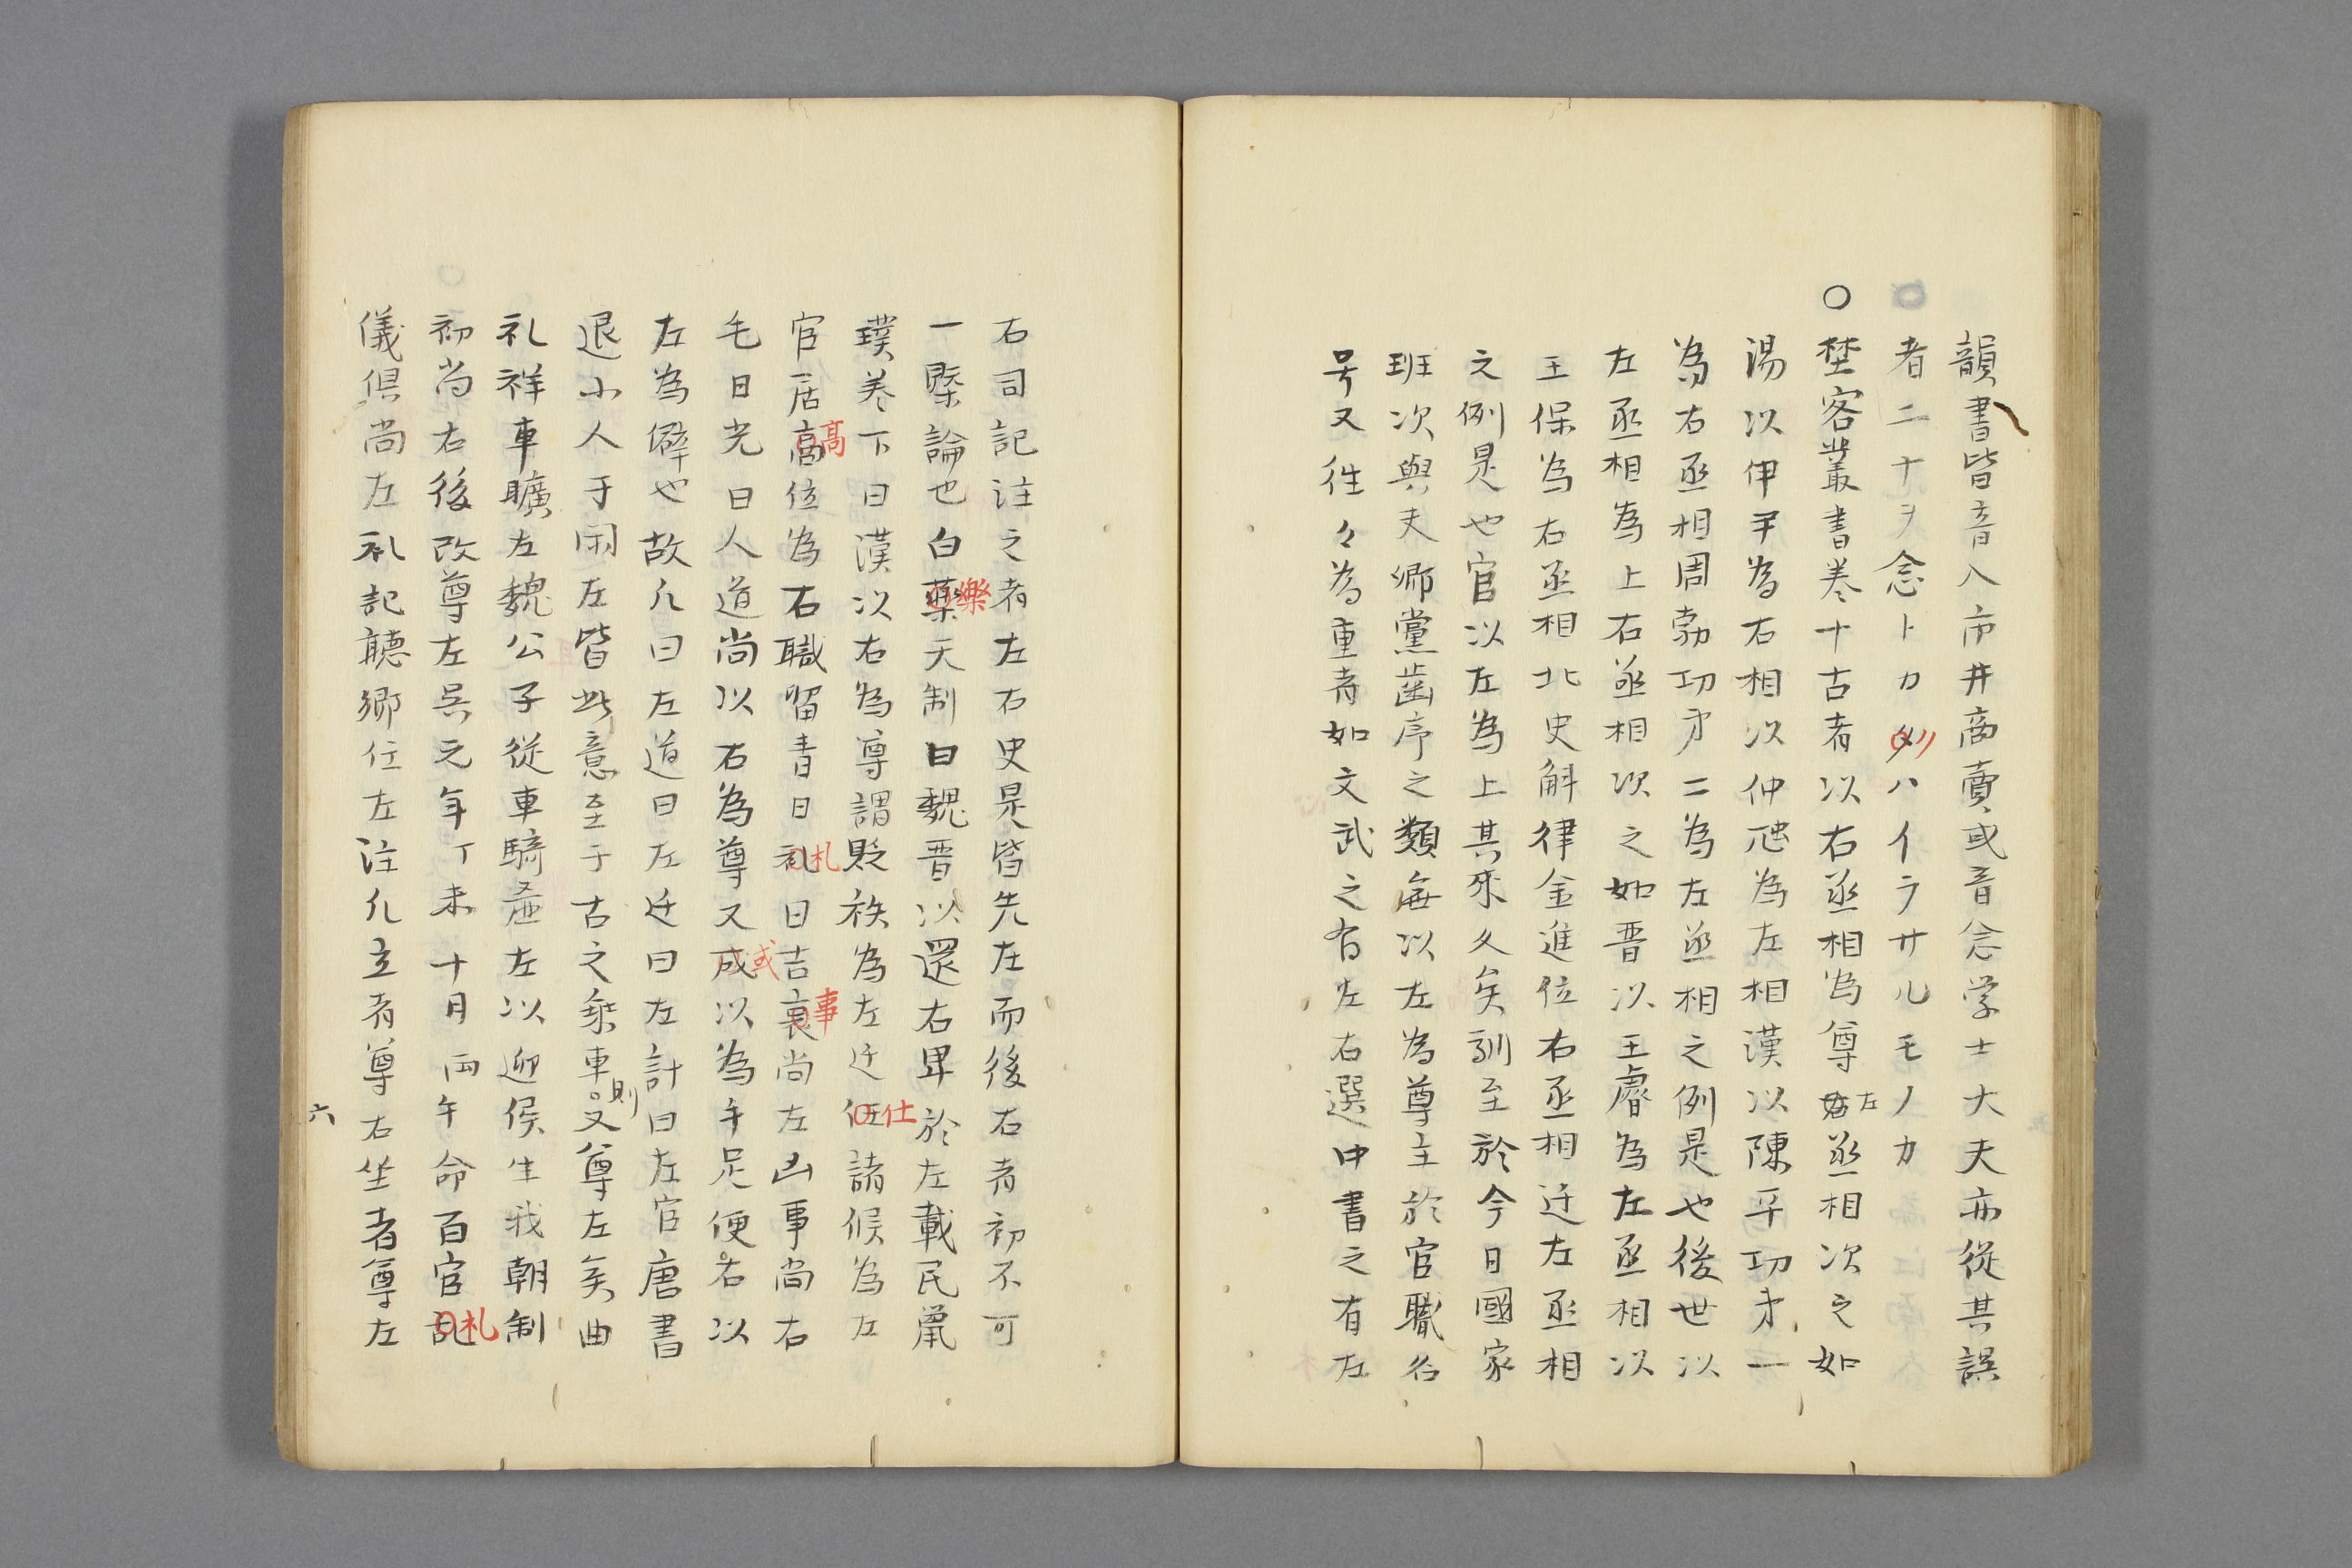 韻書皆音入市井商賣或音念学士大夫亦從其誤
者二十ヲ念トカ妙ハイラサルモノカ
○埜客叢書巻十古者以右丞相為尊左丞相次之如
湯以伊尹為右相以仲虺為左相漢以陳平功才一
為右丞相周勃功才二為左丞相之例是也後世以
左丞相為上右丞相次之如晋以王睿為左丞相以
王保為右丞相北史斛律金進位右丞相迁左丞相
之例是也官以左為上其來久矣馴至於今日國家
班次與夫鄉黨歯序之類毎以左為尊主於官職名
号又徃々為重者如文武之有左右選中書之有左
右司記注之者左右史是皆先左而後右者初不可
一槩論也白藥樂天制曰魏晋以還右卑於左載民鼠
璞巻下曰漢以右為尊謂貶秩為左迁仕諸候為左
官居高高位為右職留青日札札日吉事尚左凶事尚右
毛日光日人道尚以右為尊又成或以為手足便右以
左為僻也故凡曰左道曰左迁曰左計曰左官唐書
退小人于閑左皆此意至于古之乗車則又尊左矣曲
礼祥車曠左魏公子從車騎虚左以迎侯生我朝制
初尚右後改尊左呉元年丁未十月丙午命百官乱礼
儀倶尚左礼記聽鄉任左注凡立者尊右坐者尊左
六